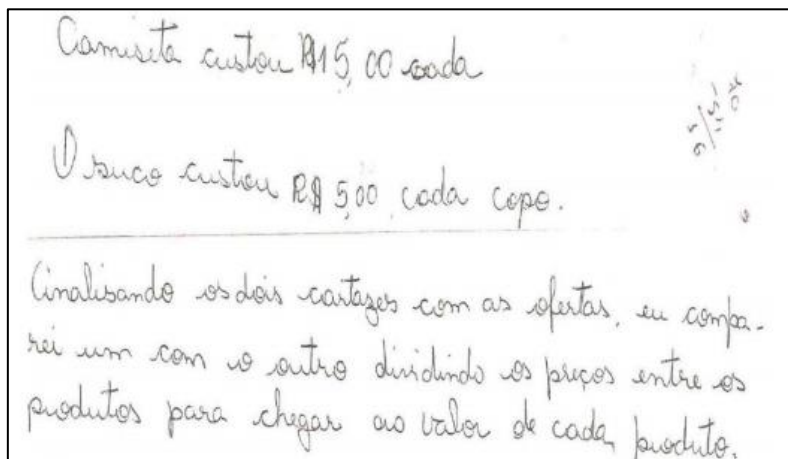 Camiseta custou R$15,00 cada
O suco custou R$ 5,00 cada copo.
Analisando os dois cartazes com as ofertas, eu compa-
rei um com o outro dividindo os preços entre os
produtos para chegar ao valor de cada produto.